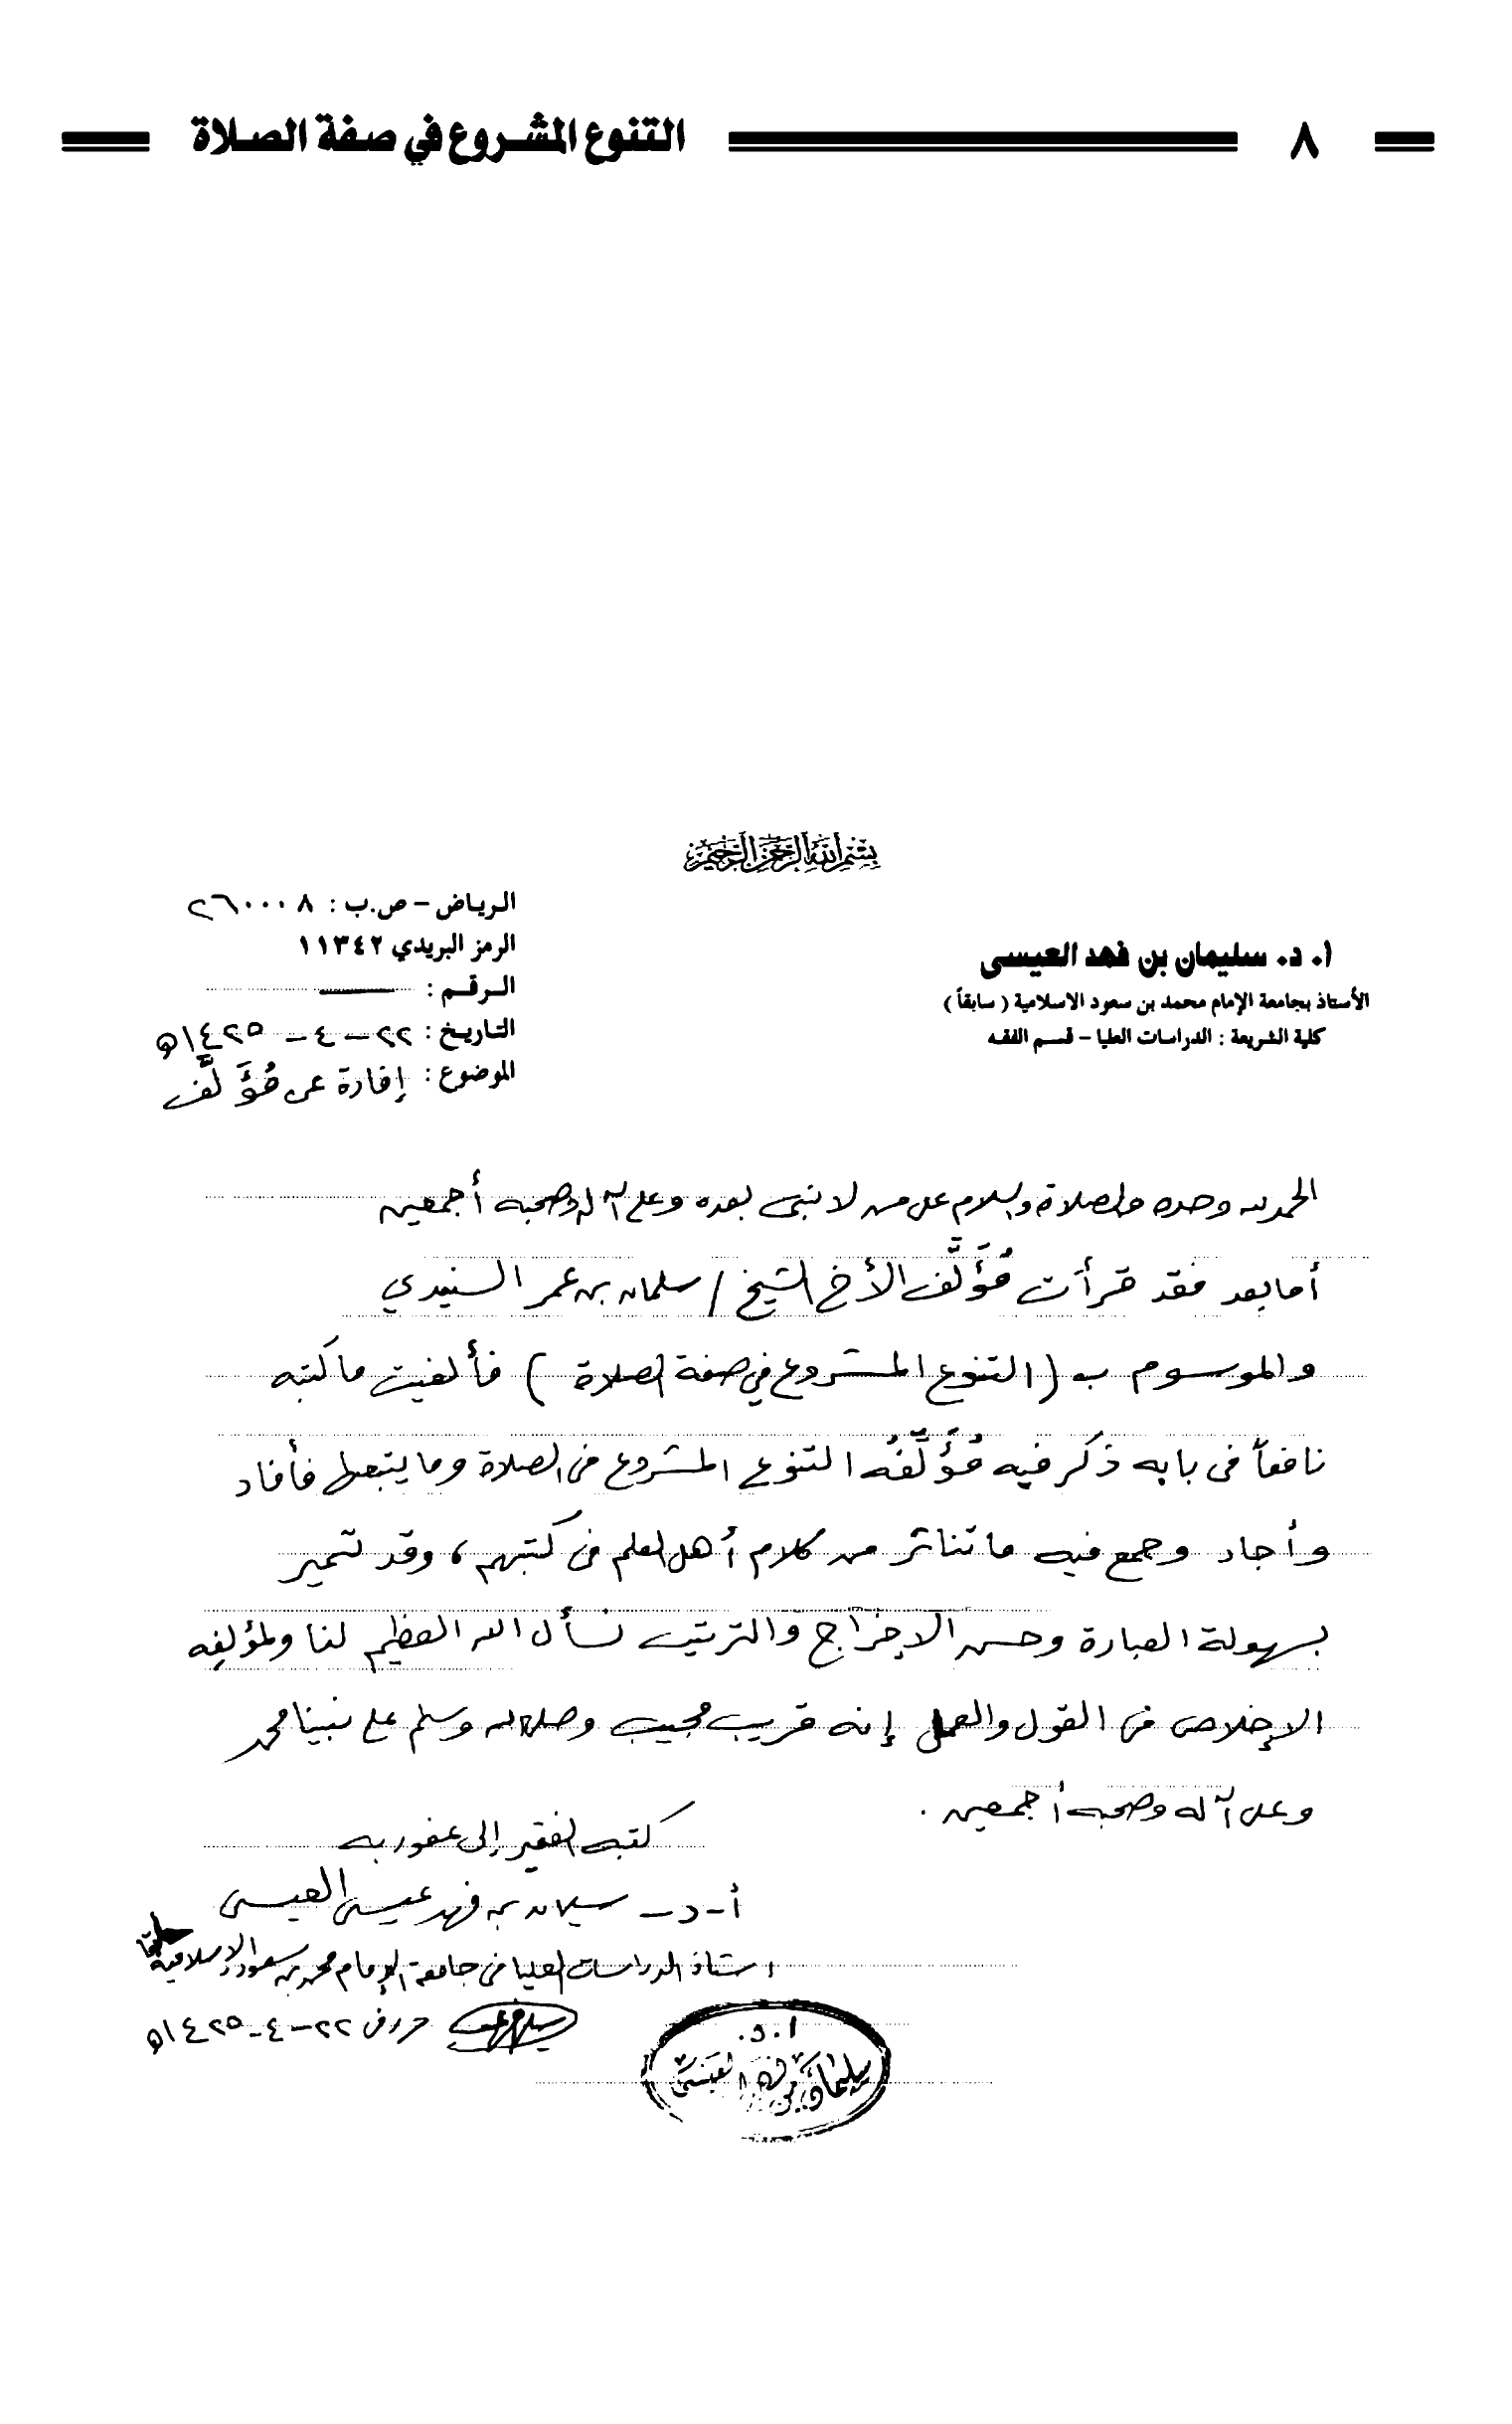 ٨ التنوع المشروع في صفة الصلاة
بسم الله الرحمن الرحيم
ا. د. سليمان بن فهد العيسى
الأستاذ بجامعة الإمام محمد بن سعود الاسلامية ( سابقاً )
كلية الشريعة : الدراسات العليا - قسم الفقه
الرياض - ص.ب : ٢٦٠٠٠٨
الرمز البريدي ١١٣٤٢
الرقم : ــــ
التاريخ : ٢٢ - ٤ - ١٤٢٥هـ
الموضوع : إفادة عن مُؤَلَّف
الحمد لله وحده والصلاة والسلام على من لا نبي بعده وعلى آله وصحبه أجمعين
أما بعد فقد قرأت مُؤَلَّف الأخ الشيخ / سلمان بن عمر السنيدي
والموسوم بـ ( التنوع المشروع في صفة الصلاة ) فألفيت ما كتبه
نافعاً في بابه ذكر فيه مُؤَلِّفُه التنوع المشروع في الصلاة وما يتبعها فأفاد
وأجاد وجمع فيه ما تناثر من كلام أهل العلم في كتبهم ، وقد تميز
بسهولة العبارة وحسن الإخراج والترتيب نسأل الله العظيم لنا ولمؤلفه
الإخلاص في القول والعمل إنه قريب مجيب وصلى الله وسلم على نبينا محمد
وعلى آله وصحبه أجمعين .
كتبه الفقير إلى عفو ربه
أ - د - سليمان بن فهد عيسى العيسى
استاذ الدراسات العليا في جامعة الإمام محمد بن سعود الإسلامية سابقا
حرر في ٢٢ - ٤ - ١٤٢٥هـ
ا . د .
سليمان بن فهد العيسى